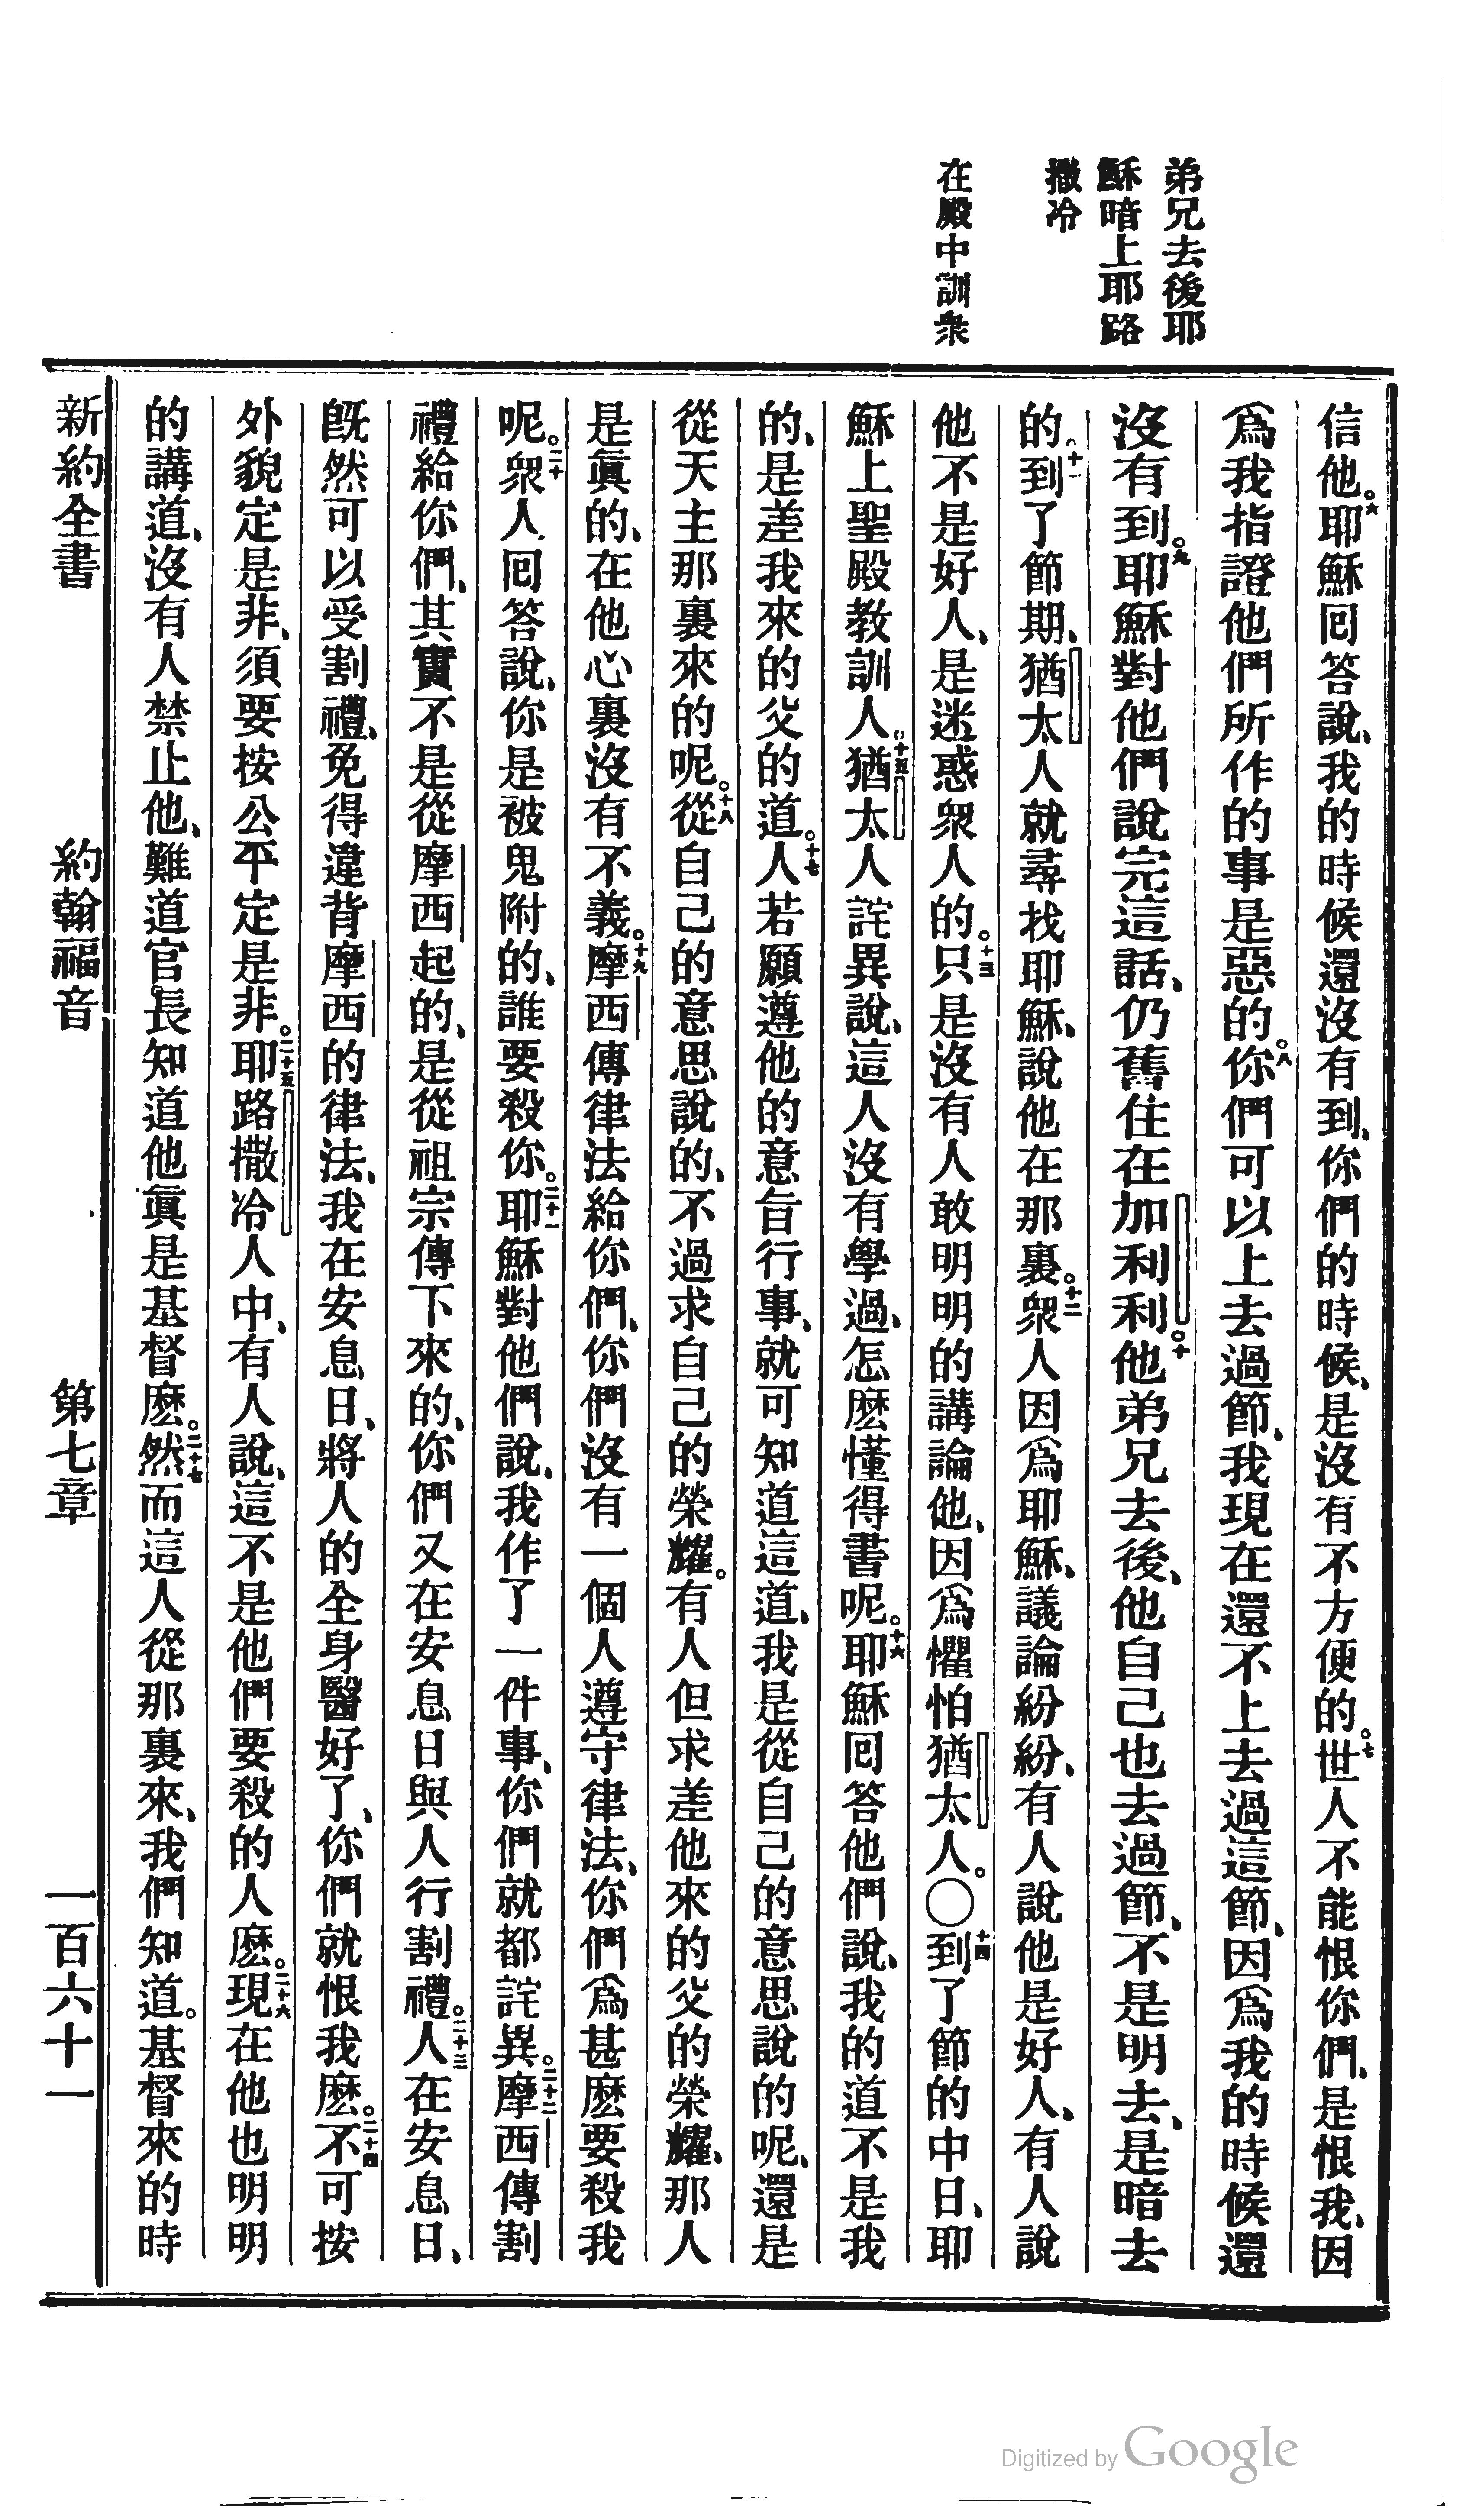 弟兄去後耶
穌暗上耶路
撒冷
在殿中訓衆
信他。六耶穌回答說、我的時候還沒有到、你們的時候、是沒有不方便的。七世人不能恨你們、是恨我、因
爲我指證他們所作的事是惡的。八你們可以上去過節、我現在還不上去過這節、因爲我的時候還
沒有到。九耶穌對他們說完這話、仍舊住在加利利。十他弟兄去後、他自己也去過節、不是明去、是暗去
的。十一到了節期、猶太人就尋找耶穌、說他在那裏。十二衆人因爲耶穌、議論紛紛、有人說他是好人、有人說
他不是好人、是迷惑衆人的。十三只是沒有人敢明明的講論他、因爲懼怕猶太人。〇十四到了節的中日、耶
穌上聖殿教訓人。十五猶太人詫異說、這人沒有學過、怎麽懂得書呢。十六耶穌回答他們說、我的道不是我
的、是差我來的父的道。十七人若願遵他的意旨行事、就可知道這道、我是從自己的意思說的呢、還是
從天主那裏來的呢。十八從自己的意思說的、不過求自己的榮耀。有人但求差他來的父的榮耀、那人
是眞的、在他心裏沒有不義。十九摩西傳律法給你們、你們沒有一個人遵守律法、你們爲甚麽要殺我
呢。二十衆人回答說、你是被鬼附的、誰要殺你。二十一耶穌對他們說、我作了一件事、你們就都詫異。二十二摩西傳割
禮給你們、其實不是從摩西起的、是從祖宗傳下來的、你們又在安息日與人行割禮。二十三人在安息日、
旣然可以受割禮、免得違背摩西的律法、我在安息日、將人的全身醫好了、你們就恨我麽。二十四不可按
外貌定是非、須要按公平定是非。二十五耶路撒冷人中、有人說、這不是他們要殺的人麽。二十六現在他也明明
的講道、沒有人禁止他、難道官長知道他眞是基督麽。二十七然而這人從那裏來、我們知道。基督來的時
新約全書　約翰福音　第七章　一百六十一
Digitized by Google